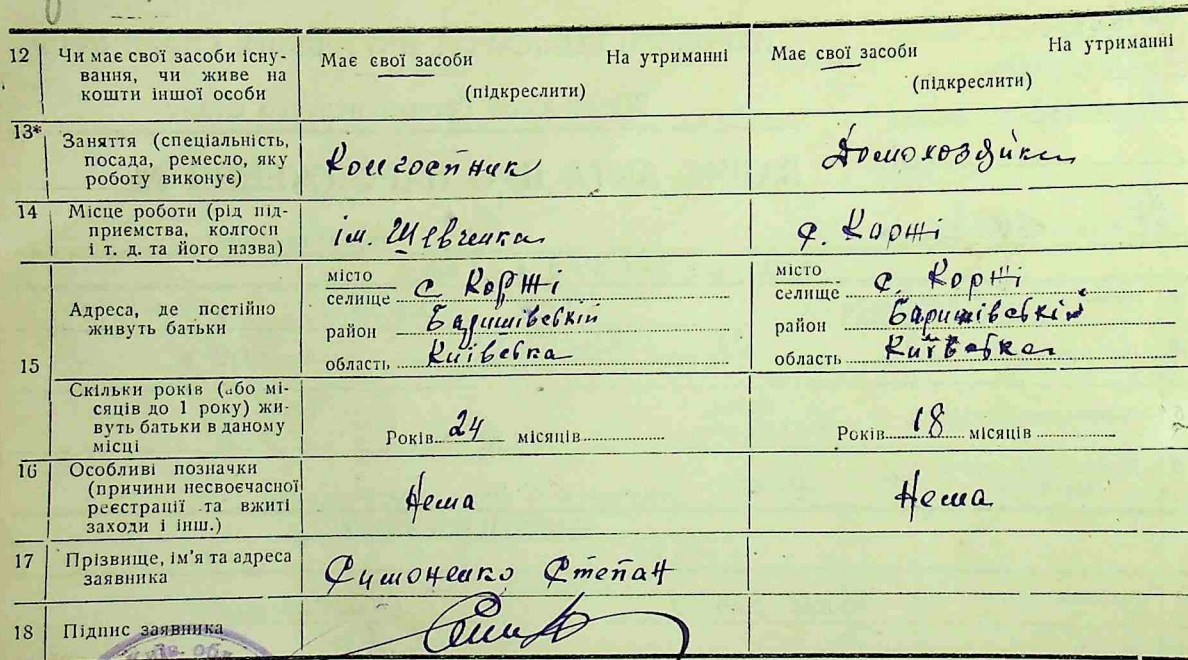 12 Чи має свої засоби існу-
вання, чи живе на
кошти іншої особи
Має свої засоби На утриманні
(підкреслити)
Має свої засоби На утриманні
(підкреслити)
13* Заняття (спеціальність,
посада, ремесло, яку
роботу виконує)
Колгоспник
Домохозяйка
14 Місце роботи (рід під-
приємства, колгосп
і т. д. та його назва)
ім. Шевченка
с. Коржі
15 Адреса, де постійно
живуть батьки
місто
селище с. Коржі
район Баришівський
область Київська
місто
селище с. Коржі
район Баришівський
область Київська
Скільки років (або мі-
сяців до 1 року) жи-
вуть батьки в даному
місці
Років 24 місяців
Років 18 місяців
16 Особливі позначки
(причини несвоєчасної
реєстрації та вжиті
заходи і інш.)
Нема
Нема
17 Прізвище, ім'я та адреса
заявника
Симоненко Степан
18 Підпис заявника
Київ. обл.